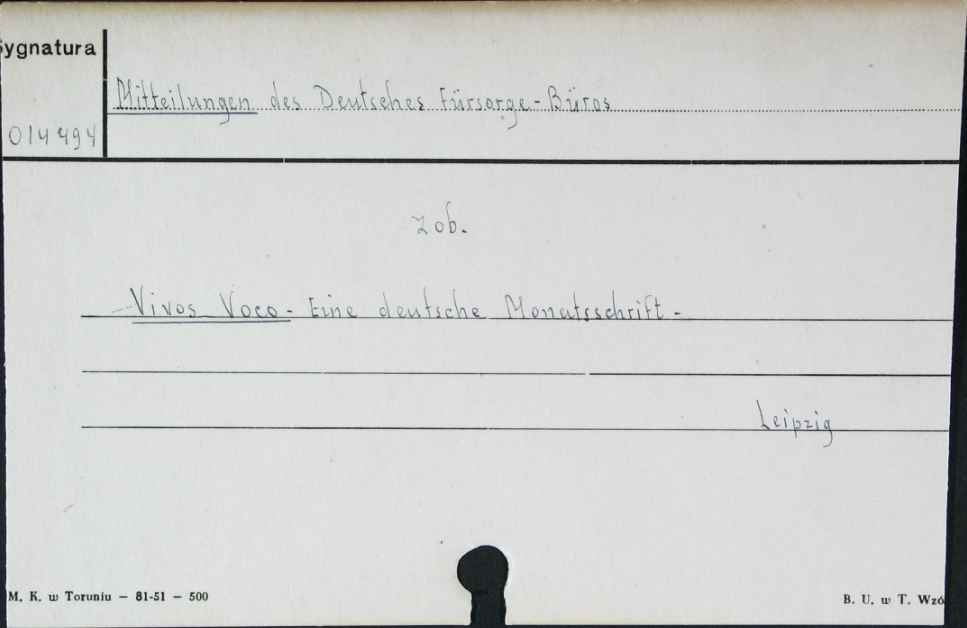 Sygnatura
Mitteilungen des Deutsches Fürsorge-Büros
014494
zob.
Vivos Voco - Eine deutsche Monatsschrift -
Leipzig
M. K. w Toruniu — 81-51 — 500
B. U. w T. Wzó